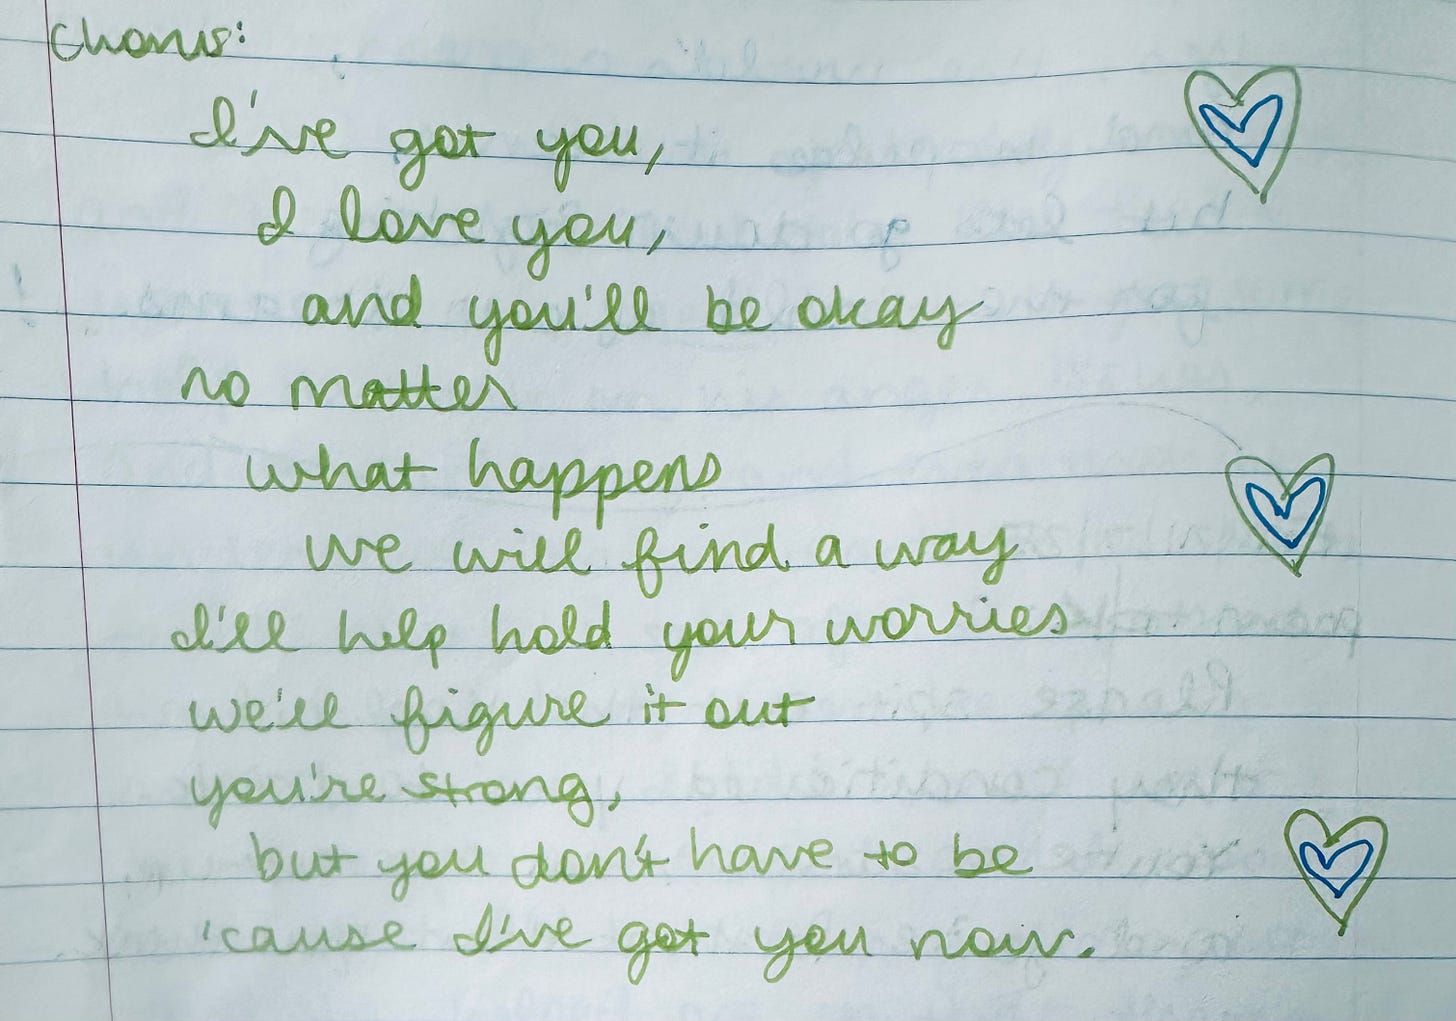 Chorus:
I've got you,
I love you,
and you'll be okay
no matter
what happens
we will find a way
I'll help hold your worries
we'll figure it out
you're strong,
but you don't have to be
'cause I've got you now.